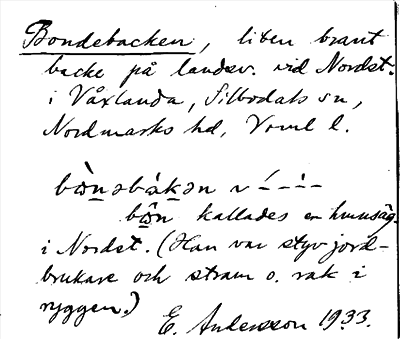 Bondebacken, liten brant
backe på landsv. vid Nordst.
i Våxlanda, Silbodals sn,
Nordmarks hd, Vrml l.
bòn̲əbàk̲ən v
bôn kallades en husäg.
i Nordst. (Han var styv jord-
brukare och stram o. rak i
ryggen.)
E. Andersson 1933.